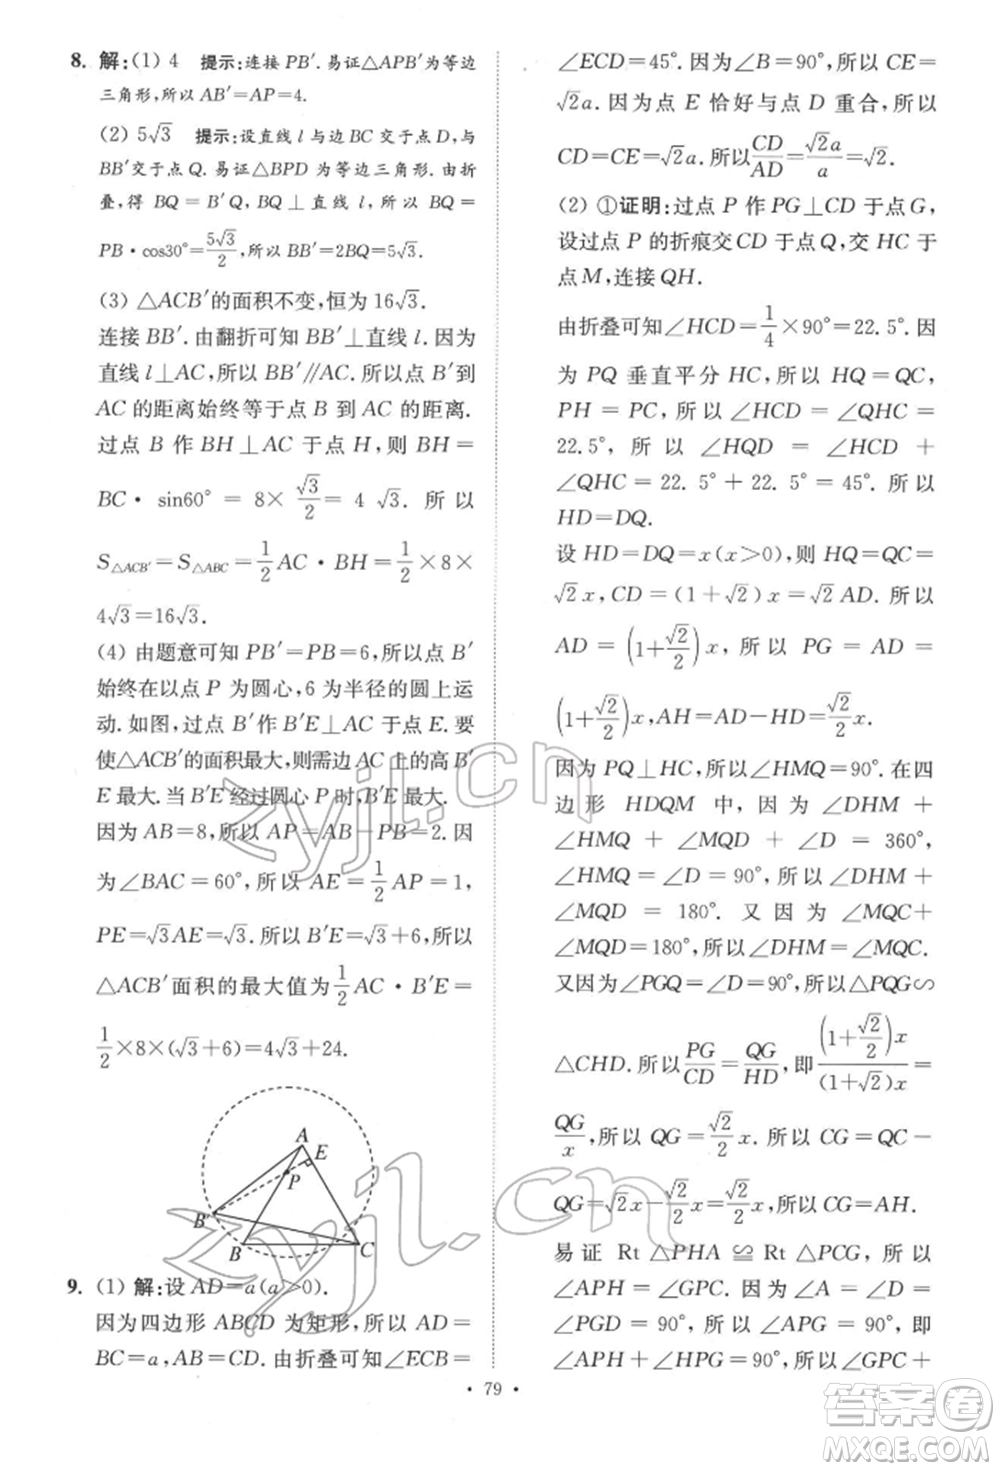 8. 解:(1) 4 提示:连接 PB′. 易证△APB′为等边
三角形,所以 AB′=AP=4.
(2) 5√3 提示:设直线 l 与边 BC 交于点 D,与
BB′交于点 Q. 易证△BPD 为等边三角形. 由折
叠,得 BQ = B′Q, BQ⊥直线 l,所以 BQ =
PB·cos30°=5√3/2,所以 BB′=2BQ=5√3.
(3) △ACB′的面积不变,恒为 16√3.
连接 BB′. 由翻折可知 BB′⊥直线 l. 因为
直线 l⊥AC,所以 BB′∥AC. 所以点 B′到
AC 的距离始终等于点 B 到 AC 的距离.
过点 B 作 BH⊥AC 于点 H,则 BH=
BC· sin60° = 8× √3/2 = 4 √3. 所以
S△ACB′=S△ABC=1/2 AC·BH=1/2×8×
4√3=16√3.
(4) 由题意可知 PB′=PB=6,所以点 B′
始终在以点 P 为圆心,6 为半径的圆上运
动. 如图,过点 B′作 B′E⊥AC 于点 E. 要
使△ACB′面积最大,则需边 AC 上的高 B′
E 最大. 当 B′E 经过圆心 P 时,B′E 最大.
因为 AB=8,所以 AP=AB-PB=2. 因
为∠BAC=60°,所以 AE=1/2 AP=1,
PE=√3AE=√3. 所以 B′E=√3+6,所以
△ACB′面积的最大值为1/2 AC·B′E=
1/2×8×(√3+6)=4√3+24.
A
E
P
B′
B
C
9. (1) 解:设 AD=a(a>0).
因为四边形 ABCD 为矩形,所以 AD=
BC=a,AB=CD. 由折叠可知∠ECB=
∠ECD=45°. 因为∠B=90°,所以 CE=
√2a. 因为点 E 恰好与点 D 重合,所以
CD=CE=√2a. 所以CD/AD=√2a/a=√2.
(2) ①证明:过点 P 作 PG⊥CD 于点 G,
设过点 P 的折痕交 CD 于点 Q,交 HC 于
点 M,连接 QH.
由折叠可知∠HCD=1/4×90°=22.5°. 因
为 PQ 垂直平分 HC,所以 HQ=QC,
PH = PC,所以∠HCD=∠QHC=
22.5°, 所以 ∠HQD = ∠HCD +
∠QHC=22. 5°+22. 5°=45°. 所以
HD=DQ.
设 HD=DQ=x(x>0),则 HQ=QC=
√2x,CD=(1+√2)x=√2 AD. 所以
AD = (1+√2/2) x, 所以 PG = AD =
(1+√2/2)x,AH=AD-HD=√2/2 x.
因为 PQ⊥HC,所以∠HMQ=90°. 在四
边形 HDQM 中,因为∠DHM+
∠HMQ + ∠MQD + ∠D = 360°,
∠HMQ=∠D=90°,所以∠DHM+
∠MQD = 180°. 又因为∠MQC+
∠MQD=180°,所以∠DHM=∠MQC.
又因为∠PGQ=∠D=90°,所以△PQG∽
△CHD. 所以PG/CD=QG/HD,即(1+√2/2)x/(1+√2)x=
QG/x,所以 QG=√2/2 x. 所以 CG=QC-
QG=√2x-√2/2 x=√2/2 x,所以 CG=AH.
易证 Rt △PHA ≌ Rt △PCG,所以
∠APH = ∠GPC. 因为∠A = ∠D =
∠PGD = 90°,所以∠APG = 90°,即
∠APH + ∠GPH = ∠GPC +
• 79 •
zyjl.cn
zyjl.cn
答案圈
MXQE.COM